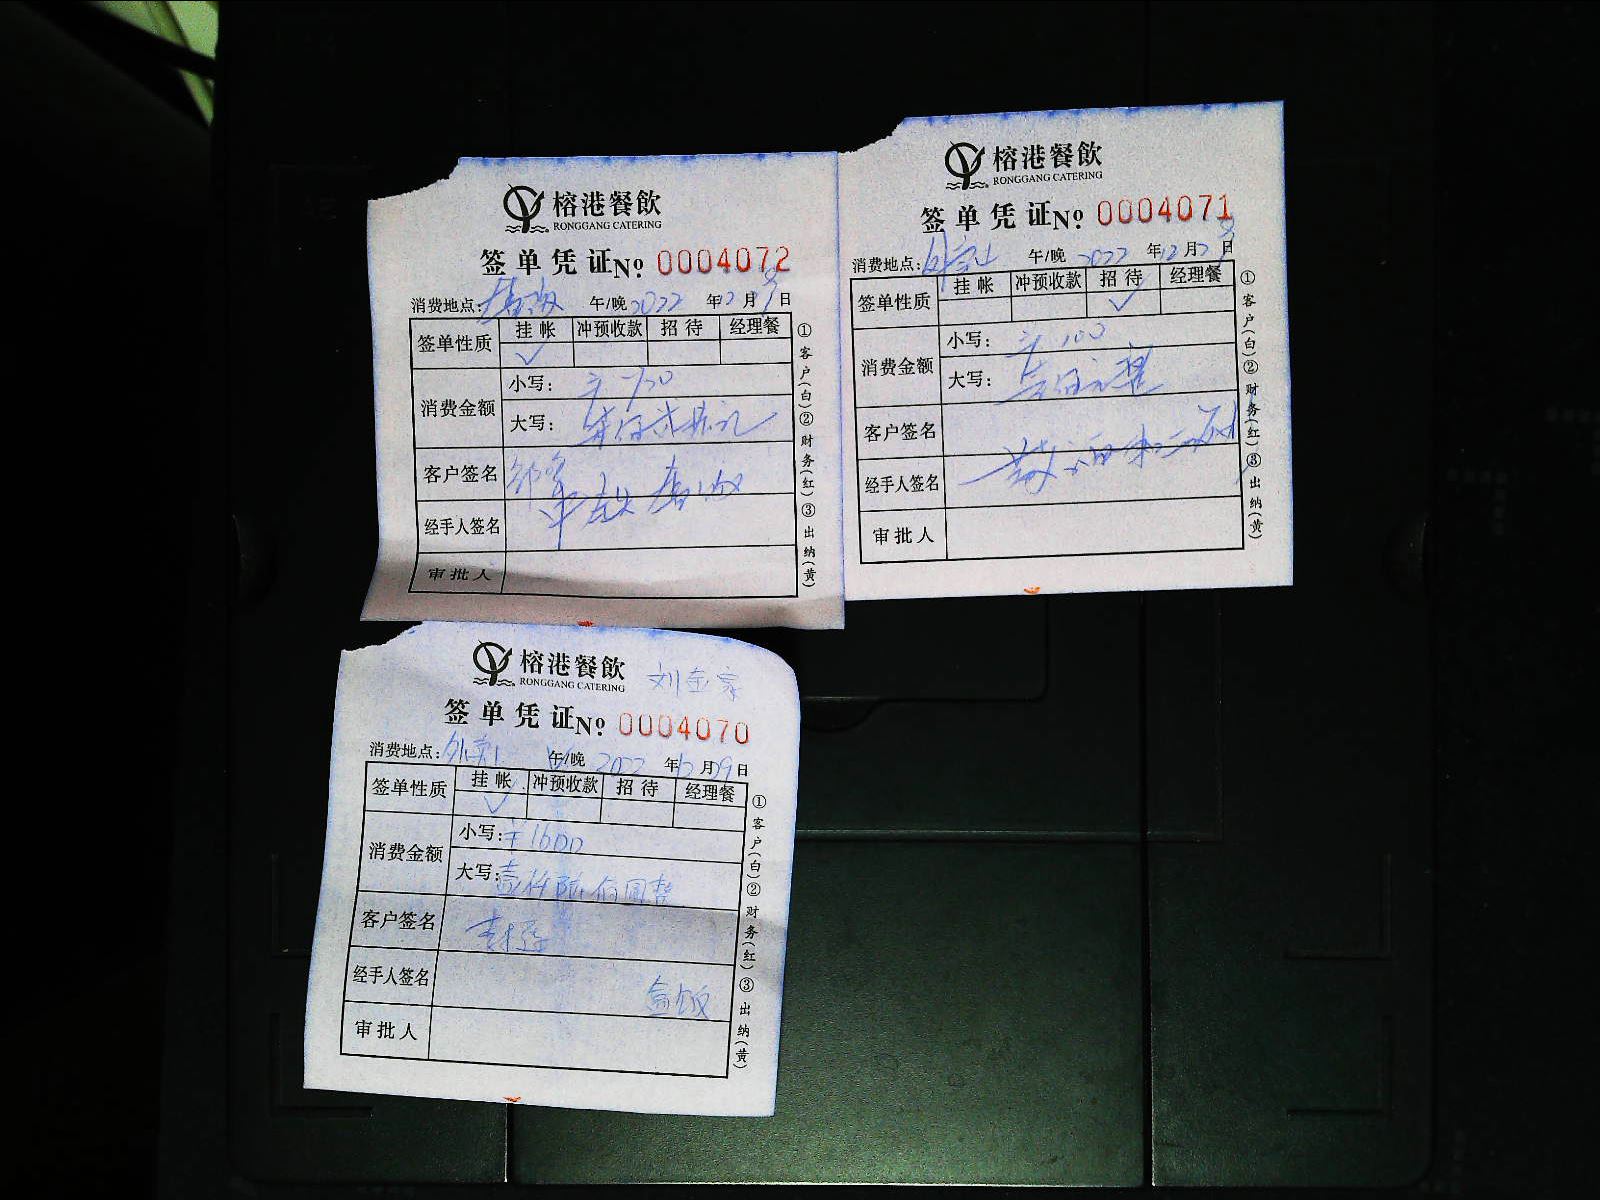 榕港餐飲
RONGGANG CATERING
签单凭证No 0004072
消费地点: 午/晚 2022 年12月 9日
签单性质 挂帐 冲预收款 招待 经理餐
✓
消费金额 小写: 720
大写: 柒佰贰拾元
客户签名
经手人签名
审批人
①客户(白)②财务(红)③出纳(黄)
榕港餐飲
RONGGANG CATERING
签单凭证No 0004071
消费地点: 外卖 午/晚 2022 年12月 日
签单性质 挂帐 冲预收款 招待 经理餐
✓
消费金额 小写: 100
大写: 壹佰元整
客户签名
经手人签名
审批人
①客户(白)②财务(红)③出纳(黄)
榕港餐飲
RONGGANG CATERING
刘金
签单凭证No 0004070
消费地点: 外卖 午/晚 2022 年12月09日
签单性质 挂帐 冲预收款 招待 经理餐
✓
消费金额 小写: ¥1600
大写: 壹仟陆佰圆整
客户签名
经手人签名 盒饭
审批人
①客户(白)②财务(红)③出纳(黄)